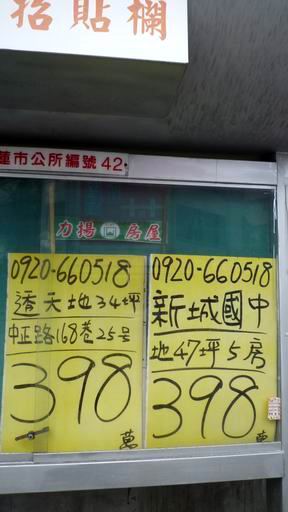 招貼欄
蓮市公所編號 42
力揚 房屋
0920-660518
透天地34坪
中正路168巷25号
398
萬
0920-660518
新城國中
地47坪5房
398
萬